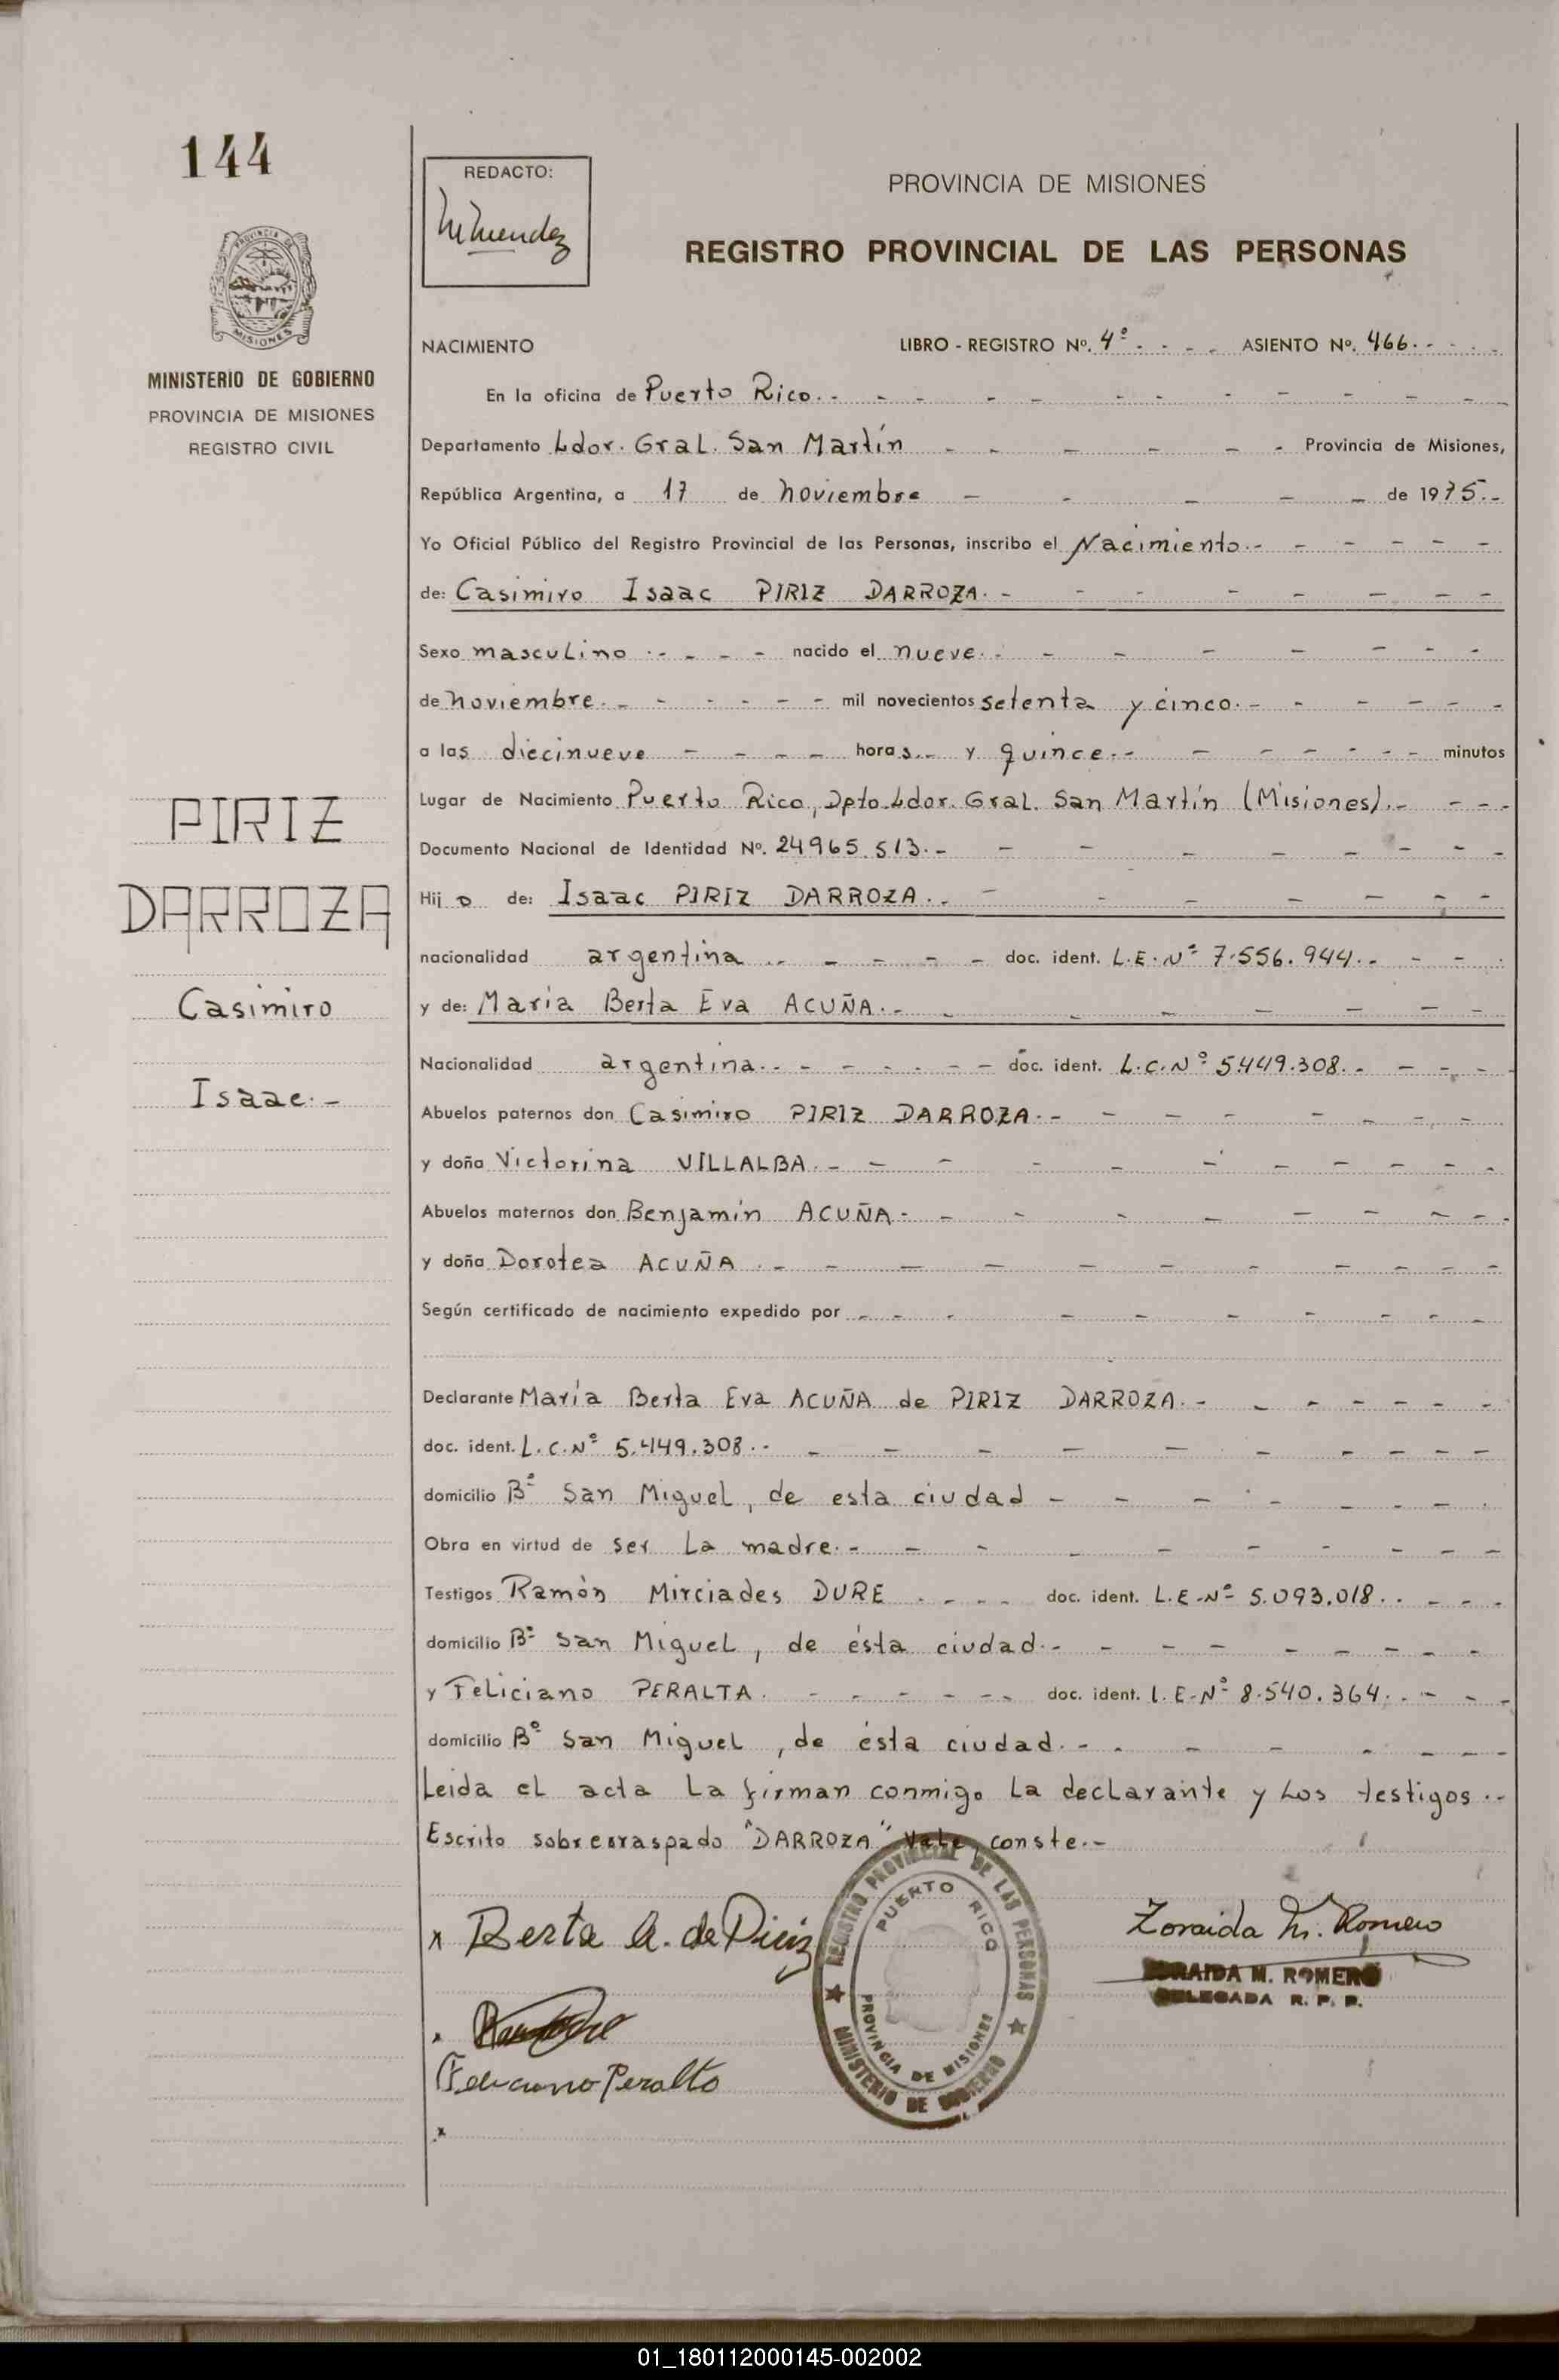 144
REDACTO:
PROVINCIA DE MISIONES
REGISTRO PROVINCIAL DE LAS PERSONAS
MISIONES
MINISTERIO DE GOBIERNO
PROVINCIA DE MISIONES
REGISTRO CIVIL
NACIMIENTO LIBRO - REGISTRO Nº. 4º - - - - ASIENTO Nº. 466.- - - -
En la oficina de Puerto Rico.-
Departamento Ldor. Gral. San Martín - - - - - - Provincia de Misiones,
República Argentina, a 17 de noviembre - - - - - de 1975.-
Yo Oficial Público del Registro Provincial de las Personas, inscribo el Nacimiento.-
de: Casimiro Isaac PIRIZ DARROZA.-
Sexo masculino.- - - - nacido el nueve.-
de noviembre.- - - - - - mil novecientos setenta y cinco.-
a las diecinueve - - - - horas.- y quince.- - - - - - - minutos
Lugar de Nacimiento Puerto Rico, Dpto. Ldor. Gral. San Martín (Misiones).-
Documento Nacional de Identidad Nº. 24965.513.-
Hijo de: Isaac PIRIZ DARROZA.-
nacionalidad argentina.- - - - - doc. ident. L.E.Nº 7.556.944.-
y de: María Berta Eva ACUÑA.-
Nacionalidad argentina.- - - - - - doc. ident. L.C.Nº 5.449.308.-
Abuelos paternos don Casimiro PIRIZ DARROZA.-
y doña Victorina VILLALBA.-
Abuelos maternos don Benjamín ACUÑA.-
y doña Dorotea ACUÑA.-
Según certificado de nacimiento expedido por - - - - - - - - -
Declarante María Berta Eva ACUÑA de PIRIZ DARROZA.-
doc. ident. L.C.Nº 5.449.308.-
domicilio Bº San Miguel, de esta ciudad -
Obra en virtud de ser la madre.-
Testigos Ramón Mirciades DURE - - - - doc. ident. L.E.Nº 5.093.018.-
domicilio Bº San Miguel, de ésta ciudad.-
y Feliciano PERALTA. - - - - - - doc. ident. L.E.Nº 8.540.364.-
domicilio Bº San Miguel, de ésta ciudad.-
Leida el acta la firman conmigo la declarante y los testigos.-
Escrito sobreraspado "DARROZA" Vale, conste.-
PIRIZ
DARROZA
Casimiro
Isaac.-
x Berta A. de Piriz
Feliciano Peralto
x
REGISTRO PROVINCIAL DE LAS PERSONAS
PUERTO RICO
PROVINCIA DE MISIONES
MINISTERIO DE GOBIERNO
Zoraida M. Romero
ZORAIDA M. ROMERO
DELEGADA R. P. P.
01_180112000145-002002